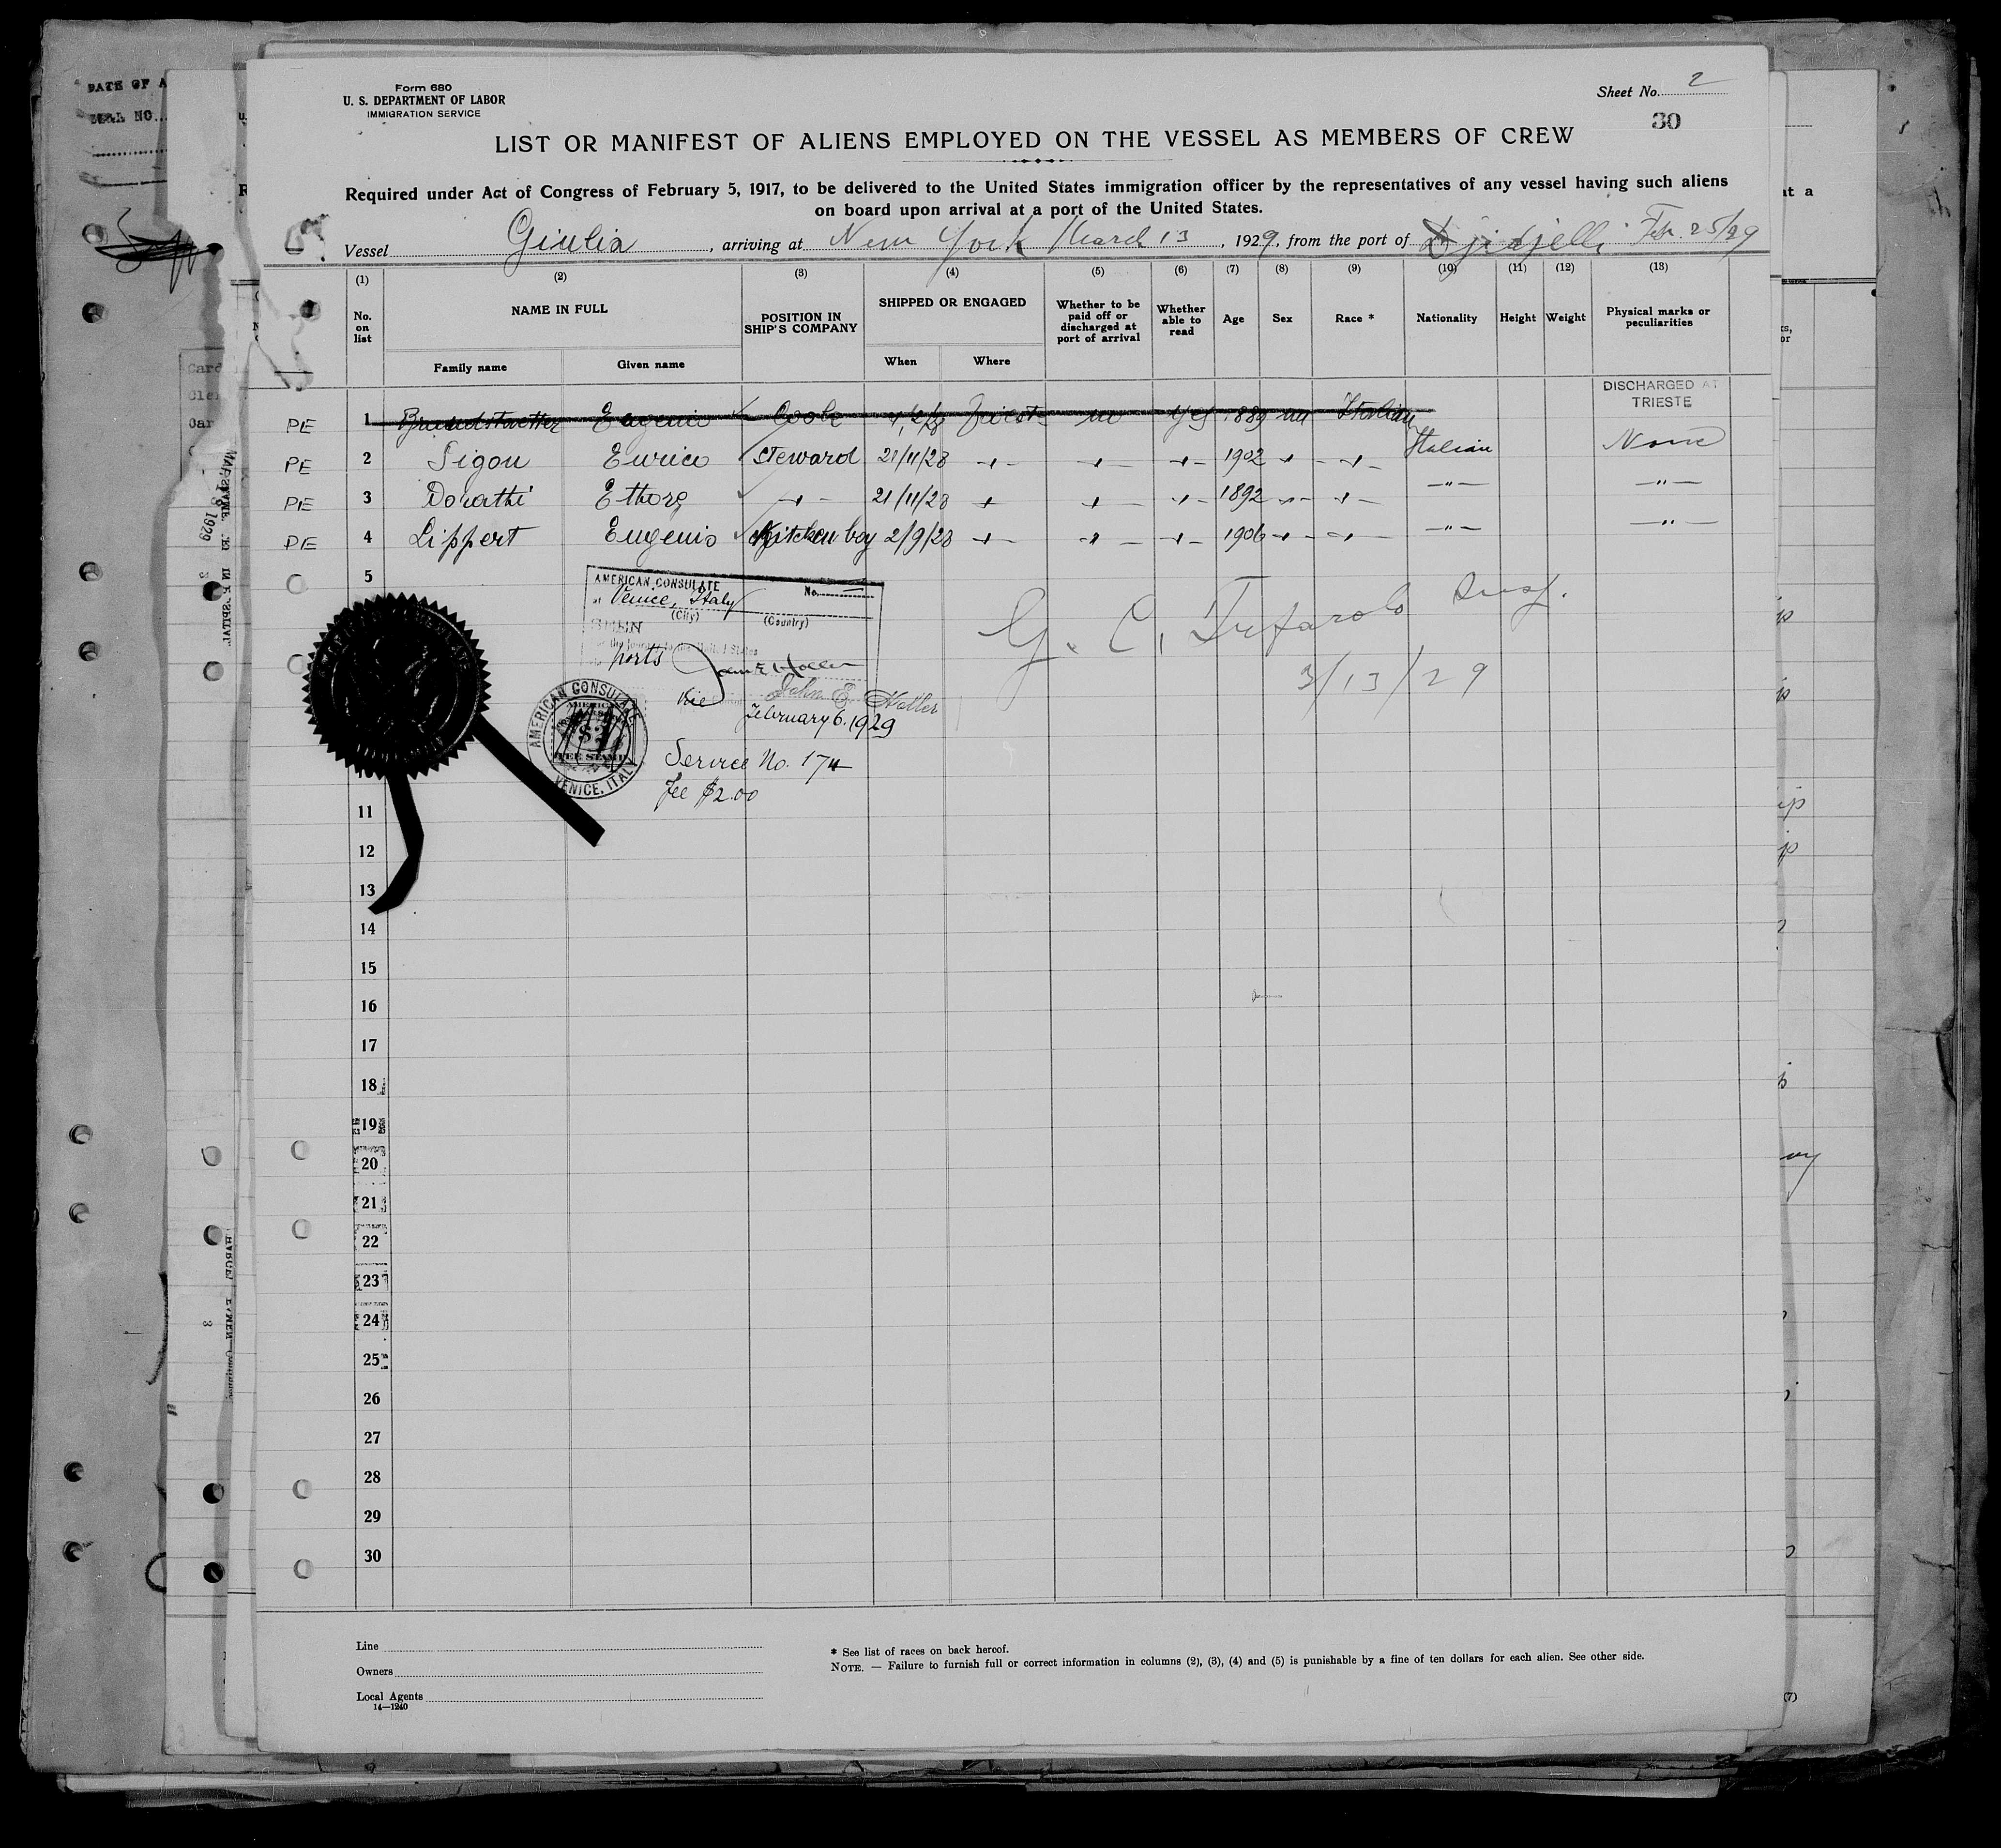 DATE OF A
Form 680
U. S. DEPARTMENT OF LABOR
IMMIGRATION SERVICE
Sheet No. 2
30
LIST OR MANIFEST OF ALIENS EMPLOYED ON THE VESSEL AS MEMBERS OF CREW
Required under Act of Congress of February 5, 1917, to be delivered to the United States immigration officer by the representatives of any vessel having such aliens
on board upon arrival at a port of the United States.
Vessel Giulia, arriving at New York March 13, 1929, from the port of Djidjelli Feb. 25/29
(1) (2) (3) (4) (5) (6) (7) (8) (9) (10) (11) (12) (13)
No. on list NAME IN FULL Family name Given name POSITION IN SHIP'S COMPANY SHIPPED OR ENGAGED When Where Whether to be paid off or discharged at port of arrival Whether able to read Age Sex Race * Nationality Height Weight Physical marks or peculiarities
DISCHARGED AT
TRIESTE
PE 1 Eugenio Cook Triest no yes 1889 m Italian
PE 2 Sigon Enrico Steward 21/11/28 -"- -"- -"- 1902 -"- -"- Italian None
PE 3 Donatti Ettore -"- 21/11/28 -"- -"- -"- 1892 -"- -"- -"- -"-
PE 4 Lippert Eugenio Kitchen boy 2/9/28 -"- -"- -"- 1906 -"- -"- -"- -"-
5
AMERICAN CONSULATE No.
at Venice, Italy
(City) (Country)
SEEN
ports
John E. Holler
Vice
February 6, 1929
AMERICAN CONSULATE
VENICE, ITALY
Service No. 174
Fee $2.00
G. C. Insp.
3/13/29
11
12
13
14
15
16
17
18
19
20
21
22
23
24
25
26
27
28
29
30
Line
Owners
Local Agents
14—1240
* See list of races on back hereof.
NOTE. — Failure to furnish full or correct information in columns (2), (3), (4) and (5) is punishable by a fine of ten dollars for each alien. See other side.